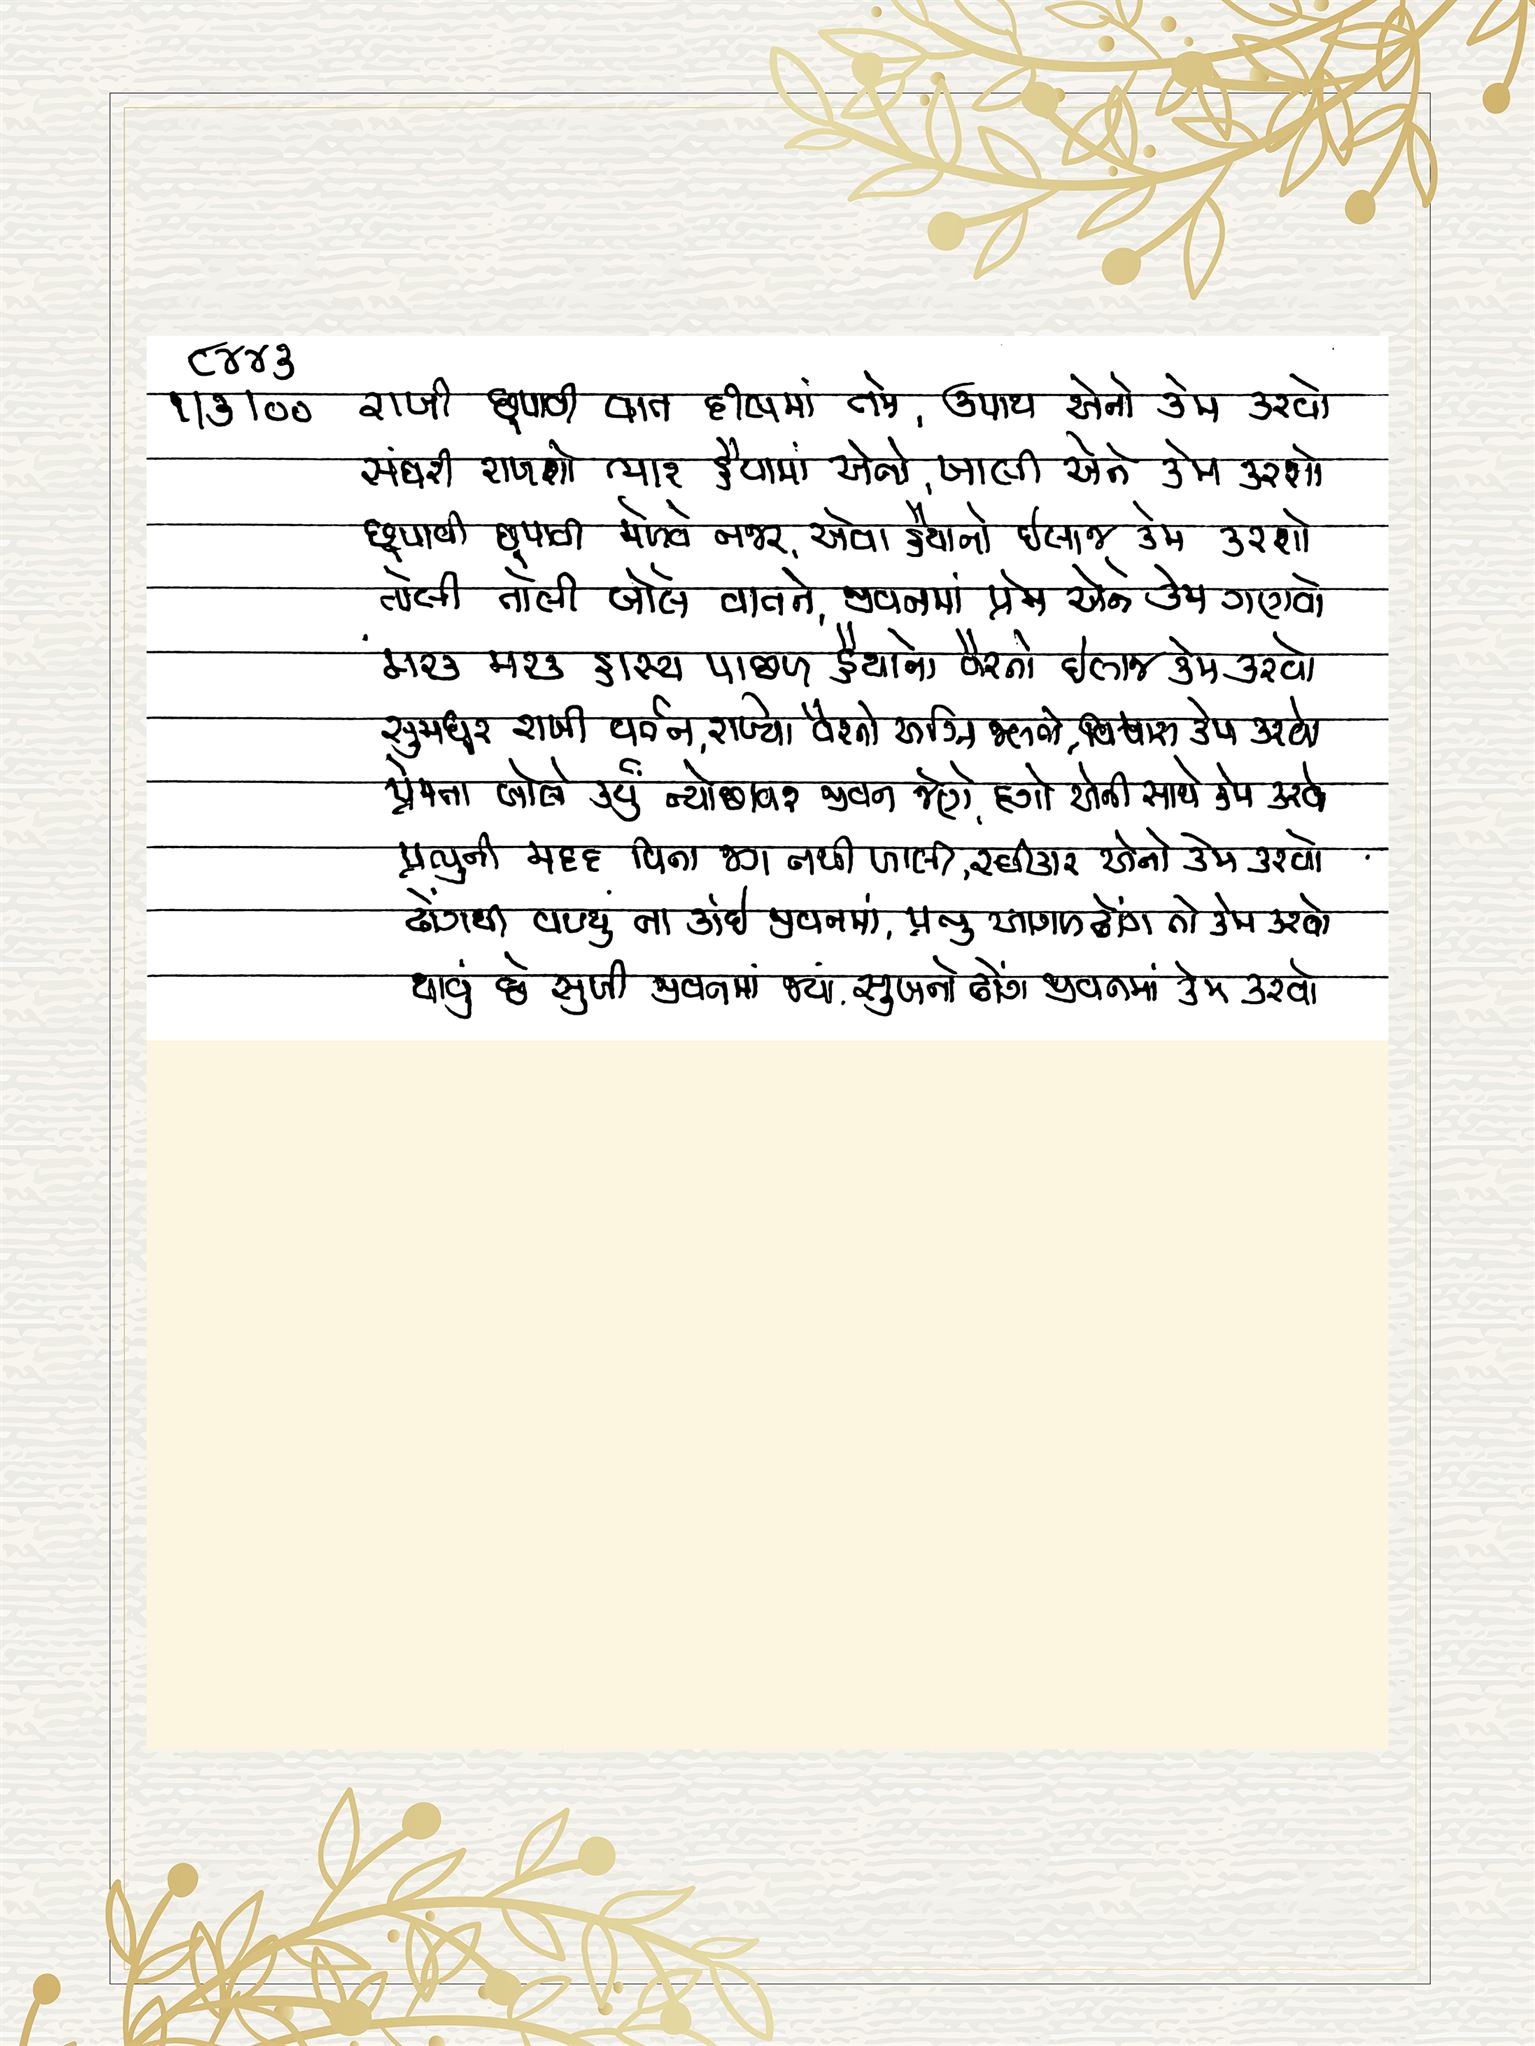 ૮૪૪૩
૧/૩/૦૦ રાખી છૂપાવી વાત દીલમાં તમે, ઉપાય એનો કેમ કરવો
સંઘરી રાખશો ભાર હૈયામાં એનો, ખાલી એને કેમ કરશો
છૂપાવી છૂપાવી મેળવે નજર, એવા હૈયાનો ઈલાજ કેમ કરશો
તોલી તોલી બોલે વાતને, જીવનમાં પ્રેમ એને કેમ ગણવો
મરક મરક હાસ્ય પાછળ હૈયાના વૈરનો ઈલાજ કેમ કરવો
સુમધૂર રાખી વર્તન, રાખ્યો વૈરનો અગ્નિ જલતો, વિશ્વાસ કેમ કરવો
પ્રેમના બોલે કર્યું ન્યોછાવર જીવન જેણે, દગો એની સાથે કેમ કરવો
પ્રભુની મદદ વિના જગ નથી ખાલી, સ્વીકાર એનો કેમ કરવો
ઢોંગથી વળ્યું ના કાંઈ જીવનમાં, પ્રભુ આગળ ઢોંગ તો કેમ કરવો
થાવું છે સુખી જીવનમાં જ્યાં, સુખનો ઢોંગ જીવનમાં કેમ કરવો